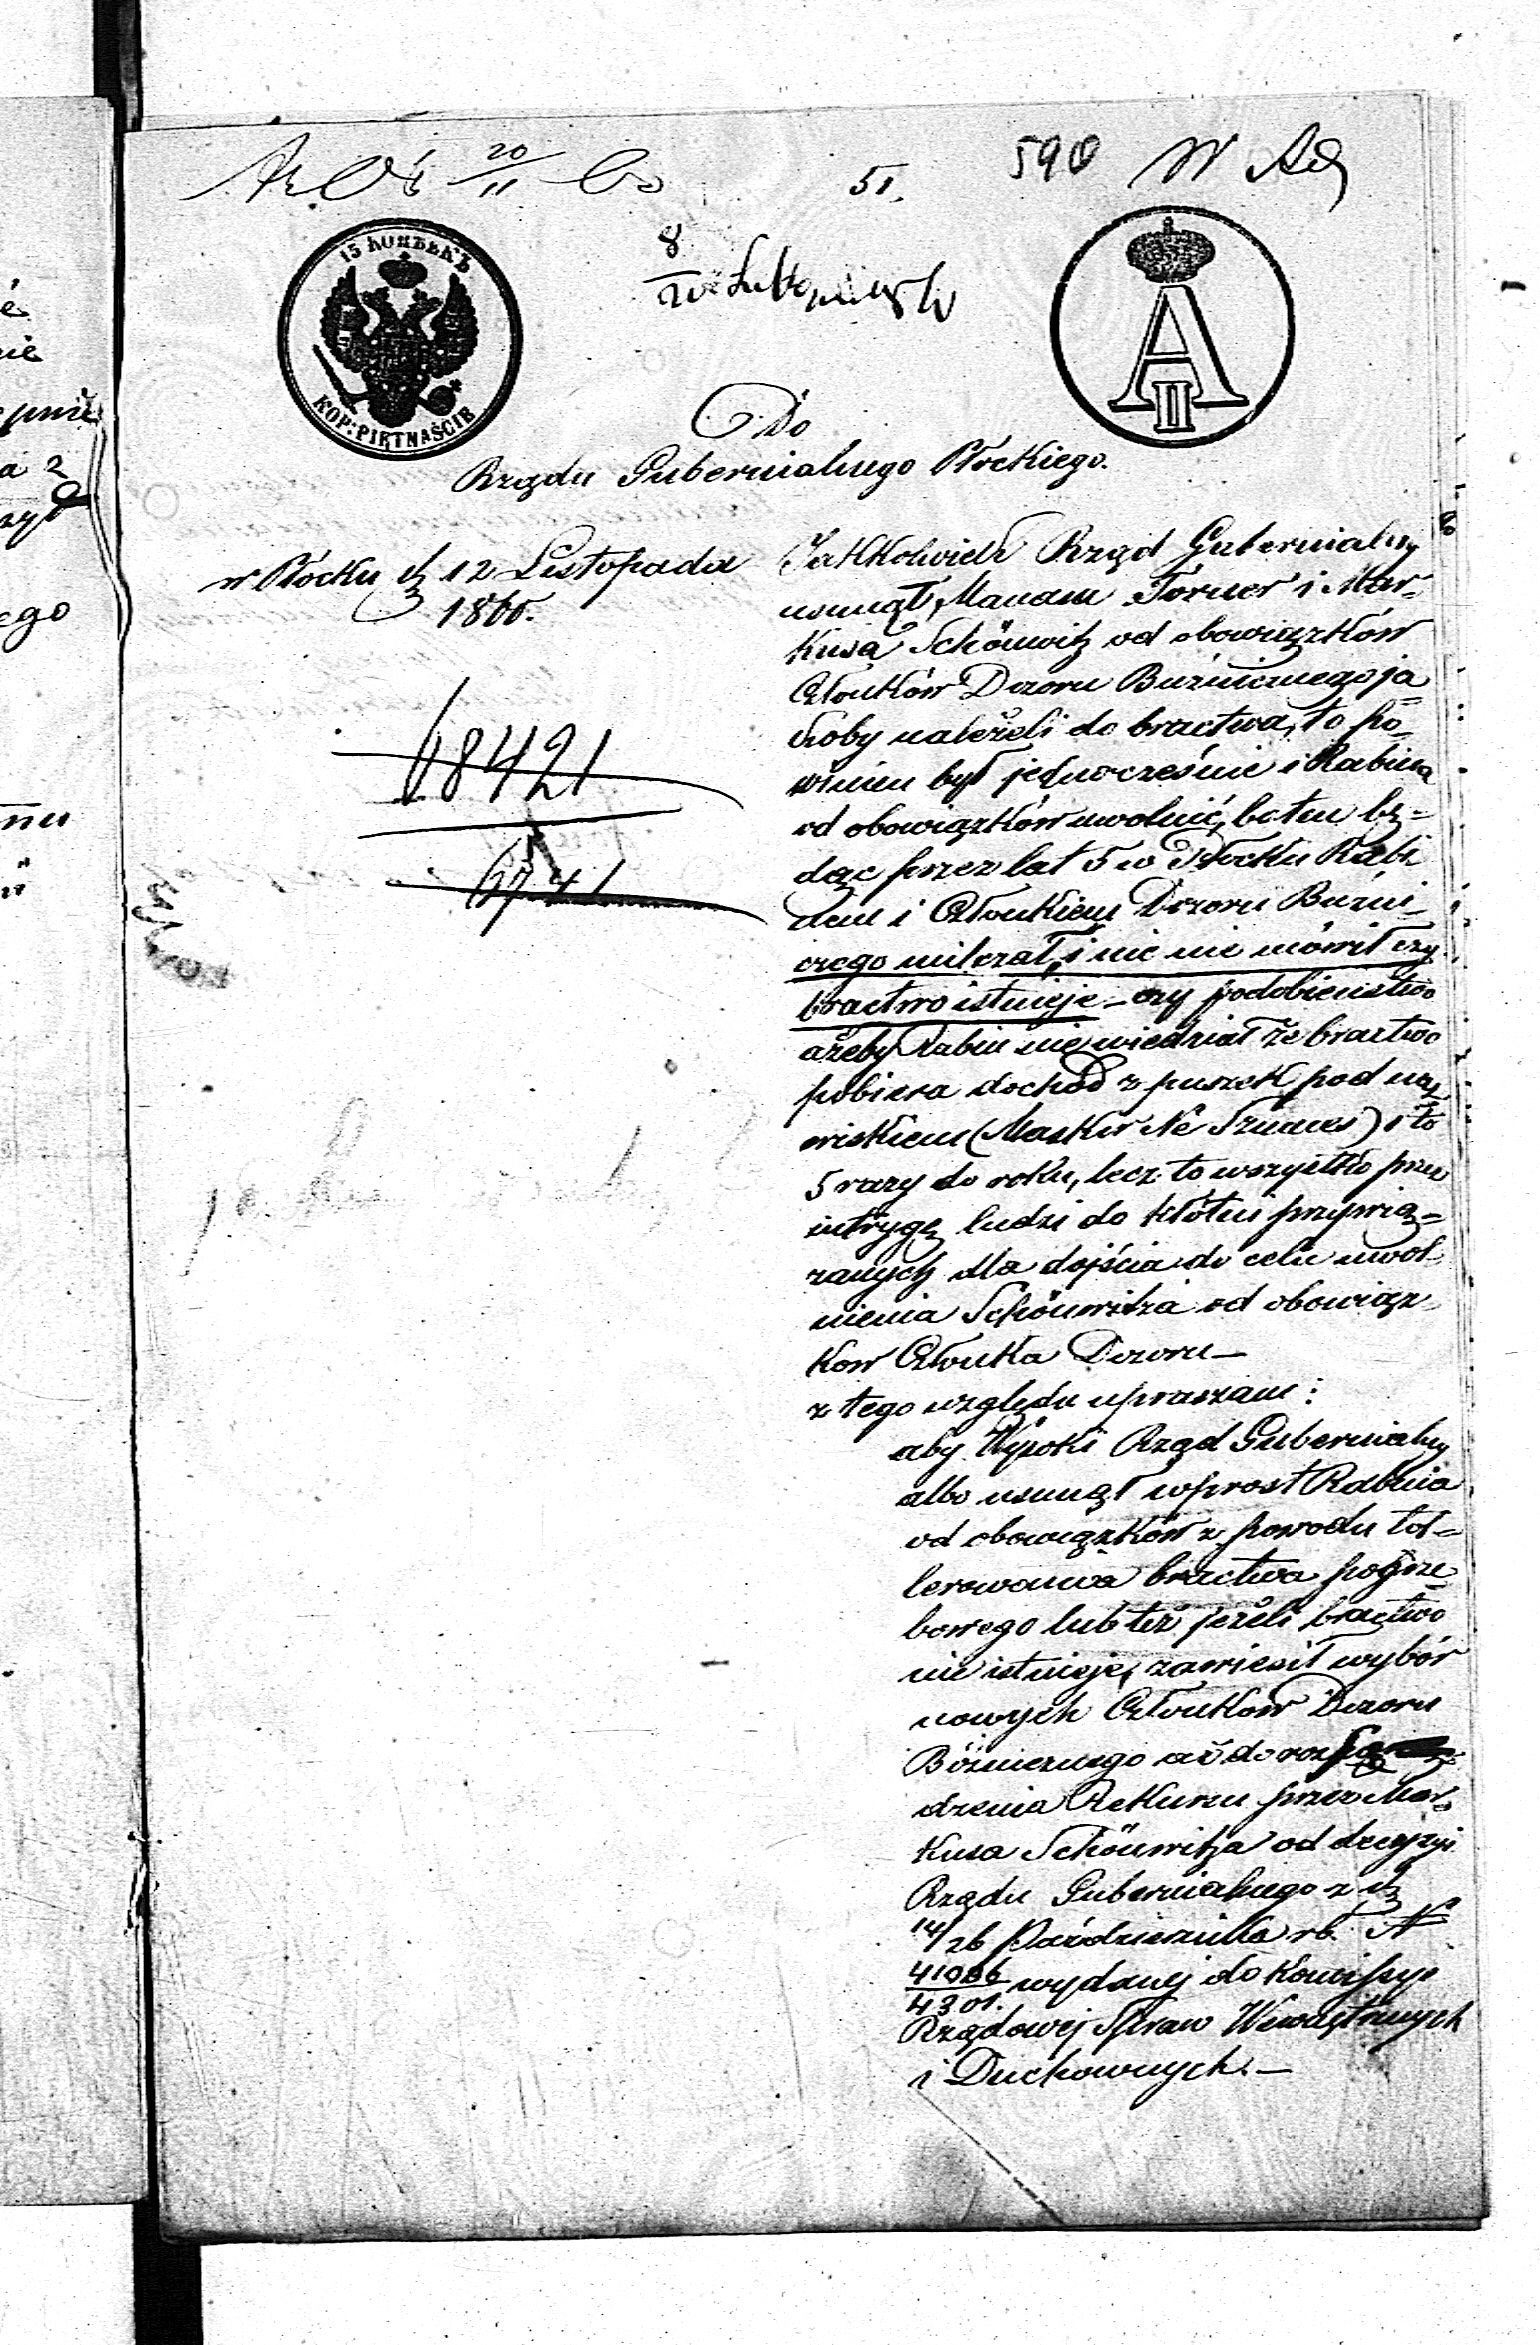 20/11 60
51.
590 W Ad
15 КОПѢЕКЪ
KOP: PIĘTNAŚCIE
A II
8
Do
Rządu Gubernialnego Płockiego.
w Płocku d. 12 Listopada
1860.
68421
6741
Jakkolwiek Rząd Gubernialny
usunął, Manam Törner i Mar-
kusa Schönwitz od obowiązków
Członków Dozoru Bużnicznego ja=
koby należeli do bractwa, to po-
winien był jednocześnie i Rabina
od obowiązków uwolnić, bo ten bę=
dąc przez lat 5 w Płocku Rabi
nem i Członkiem Dozoru Buźni-
czego milczał, i nic nie mówił czy
bractwo istnieje – czy podobieństwo
ażeby Rabin nie wiedział że bractwo
pobiera dochód z puszek pod naz
wiskiem (Maskir Ne Sznuces) i to
5 razy do roku, lecz to wszystko przez
intrygę ludzi do kłótni przywią=
zanych dla dojścia do celu uwol-
nienia Schönwitza od obowiąz-
kow Członka Dozoru –
z tego względu upraszam:
aby Wysoki Rząd Gubernialny
albo usunął wprost Rabina
od obowiązków z powodu tol=
lerowania bractwa pogrze-
bowego lub też jeżeli bractwo
nie istnieje, zawiesił wybór
nowych Członkow Dozoru
Bóźnicznego aż do rozpo
dzenia Rekursu przez Mar-
kusa Schönwitza od decyzyi
Rządu Gubernialnego z d.
14/26 Października rb. N
41086/4301. wydanej do Komissyi
Rządowej Spraw Wewnętrznych
i Duchownych. –